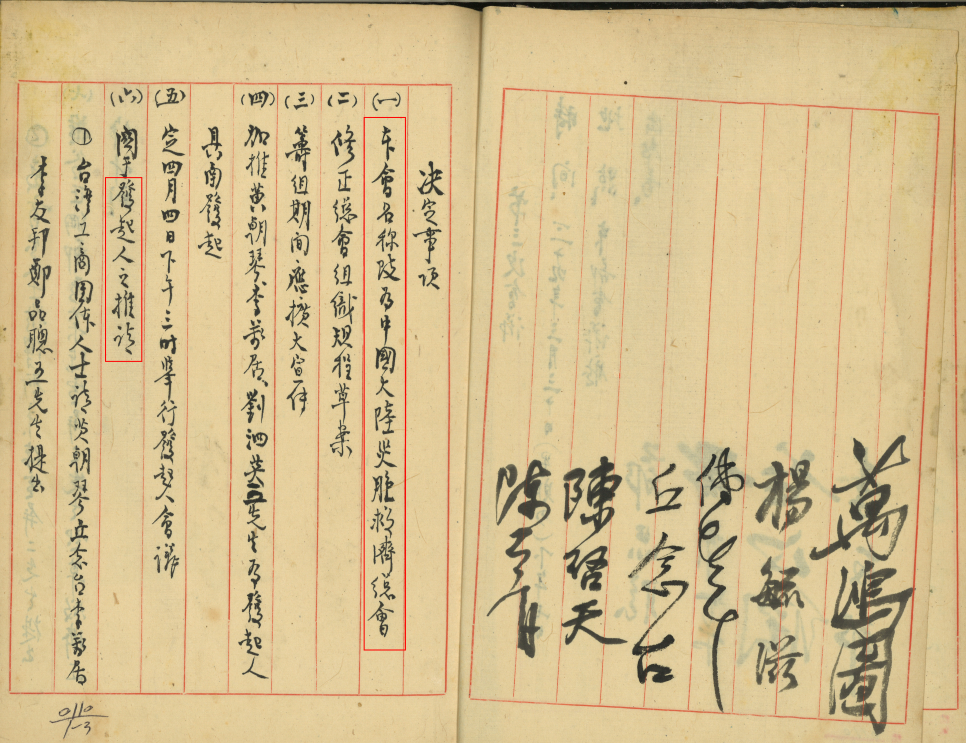 萬鴻圖
楊毓滋
丘念台
陳啓天
決定事項
(一)本會名称改為中國大陸災胞救濟總會
(二)修正總會組織規程草案
(三)籌組期間應擴大宣传
(四)加推黃朝琴、李萬居、劉泗英三先生為發起人
具南發起
(五)定四月四日下午三时舉行發起人會議
(六)関于發起人之推請
①台湾工商团体人士請黃朝琴丘念台李萬居
李友邦鄭品聰五先生提出
0110
1-3